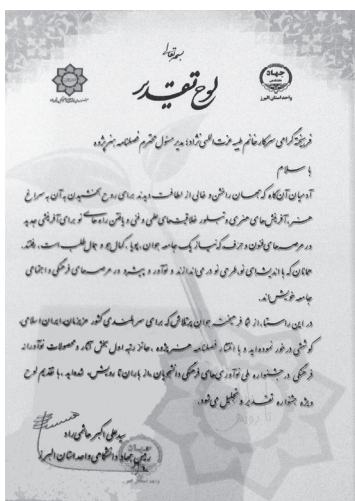 بسمه تعالی
لوح تقدیر
جهاد
دانشگاهی
واحد استان البرز
فرهیخته گرامی سرکار خانم ملیه عزت اللهی نژاد؛ مدیر مسئول محترم فصلنامه هنر پژوه
با سلام
آدمیان آن گاه که جهان را خشن و خالی از لطافت دیدند برای روح بخشیدن به آن به سراغ
هنر، آفرینش‌های هنری و تبلور خلاقیت‌های علمی و فنی و یافتن راه‌هایی نو برای آفرینشی جدید
در عرصه‌های فنون و حرف که نیاز یک جامعه جوان، پویا، کمال جو و جمال طلب است، رفتند.
همانان که با اندیشه‌ای نو، طرحی نو در می‌اندازند و نوآور و پیشرو در عرصه‌های فرهنگی و اجتماعی
جامعه خویش‌اند.
در این راستا، از شما فرهیخته جوان پرتلاش که برای سربلندی کشور عزیزمان ایران اسلامی
کوششی در خور نموده‌اید و با انتشار فصلنامه هنر پژوه، حائز رتبه اول بخش آثار و محصولات نوآورانه
فرهنگی در جشنواره ملی نوآوری‌های فرهنگی دانشجویان «از باران تا رویش» شده‌اید، با تقدیم لوح
ویژه جشنواره تقدیر و تجلیل می‌شود.
سید علی اکبر هاشمی راد
رئیس جهاد دانشگاهی واحد استان البرز